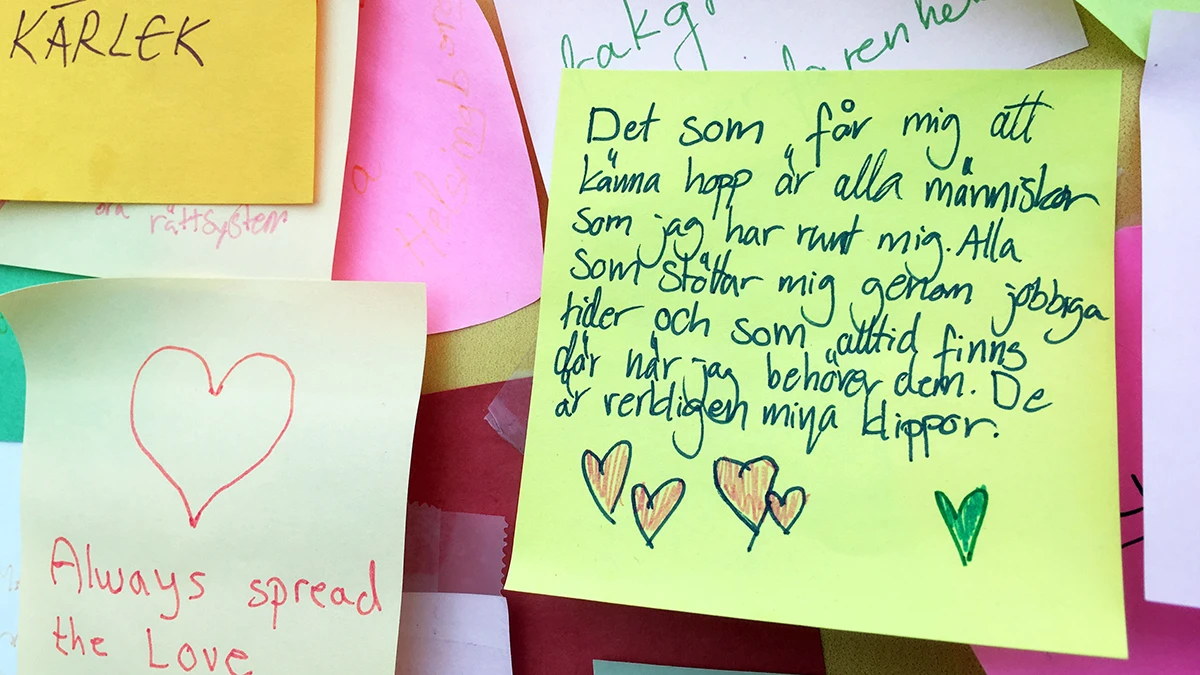 KÄRLEK
rättsystem
Helsingborg
Det som får mig att
känna hopp är alla människor
som jag har runt mig. Alla
som stöttar mig genom jobbiga
tider och som alltid finns
där när jag behöver dem. De
är verkligen mina klippor.
Always spread
the Love